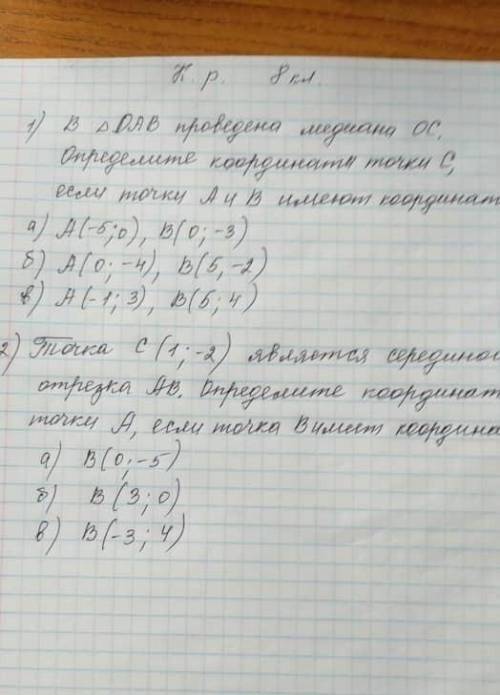 К. р. 8 кл.
1) В △ OAB проведена медиана OC.
Определите координаты точки C,
если точки A и B имеют координат
а) A(-5;0), B(0; -3)
б) A(0; -4), B(5, -2)
в) A(-1; 3), B(5; 4)
2) Точка C (1; -2) является серединой
отрезка AB. Определите координат
точки A, если точка B имеет координа
а) B(0; -5)
б) B (3; 0)
в) B(-3; 4)